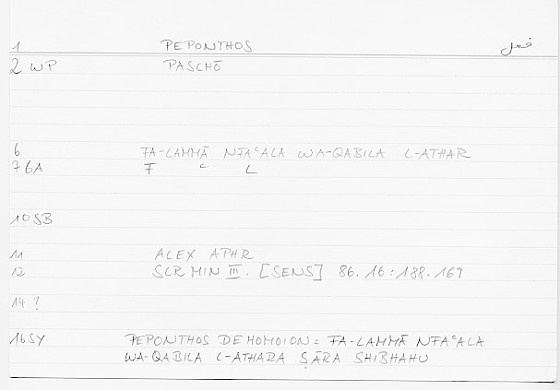 1 PEPONTHOS فعل
2 WP PASCHŌ
6 FA-LAMMĀ NFAᶜALA WA-QABILA L-ATHAR
7 6A F ᶜ L
10 SB
11 ALEX APHR
12 SCR MIN III. [SENS] 86.16:188.167
14 ?
16 SY PEPONTHOS DE HOMOION = FA-LAMMĀ NFAᶜALA
WA-QABILA L-ATHARA ṢĀRA SHIBHAHU